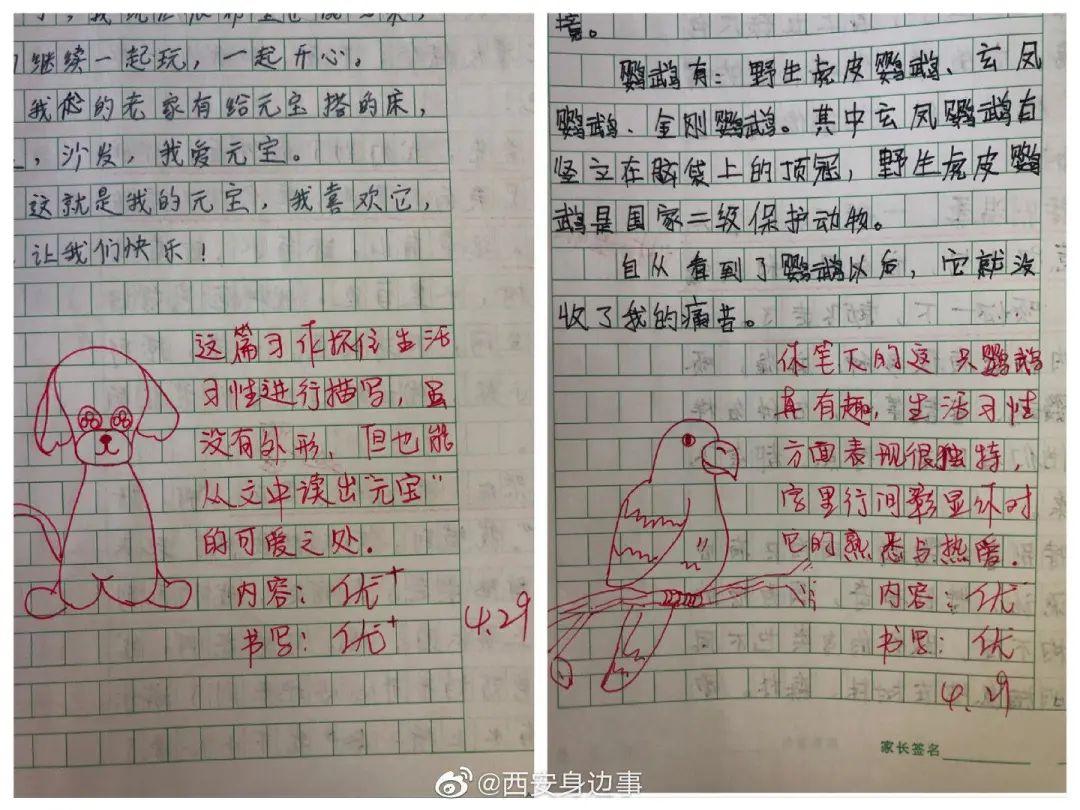 继续一起玩，一起开心。
我爸的老家有给元宝搭的床，
，沙发，我爱元宝。
这就是我的元宝，我喜欢它，
让我们快乐！
这篇习作抓住生活
习性进行描写，虽
没有外形，但也能
从文中读出“元宝”
的可爱之处.
内容：优+
书写：优+
4.29
境。
鹦鹉有：野生虎皮鹦鹉、玄凤
鹦鹉、金刚鹦鹉。其中玄凤鹦鹉有
竖立在脑袋上的顶冠，野生虎皮鹦
鹉是国家二级保护动物。
自从看到了鹦鹉以后，它就没
收了我的痛苦。
你笔下的这只鹦鹉
真有趣，生活习性
方面表现很独特，
字里行间彰显你对
它的熟悉与热爱.
内容：优
书写：优
4.29
家长签名
@西安身边事